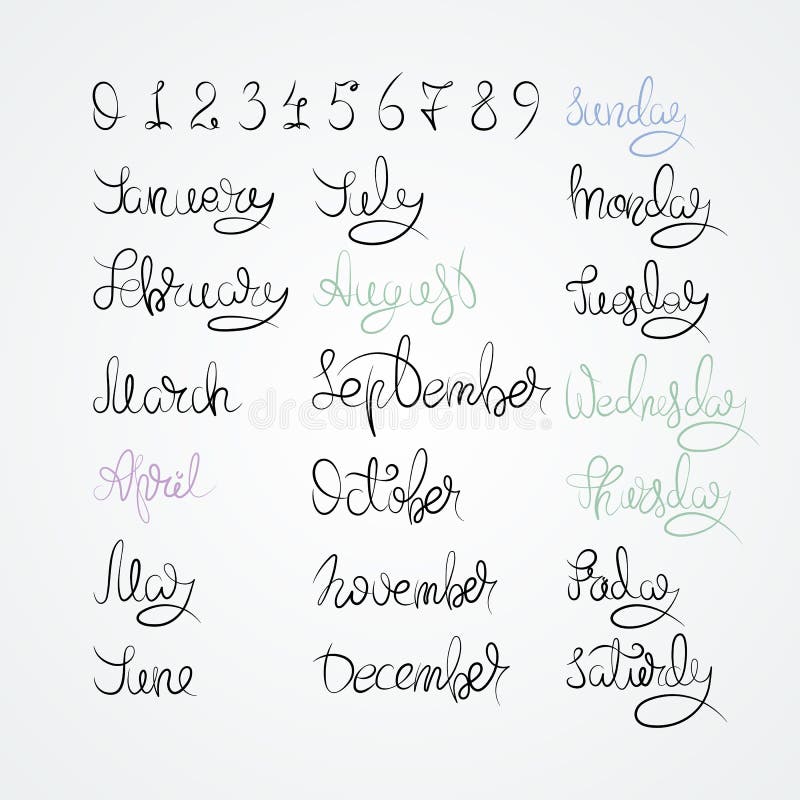 0 1 2 3 4 5 6 7 8 9
January
February
March
April
May
June
July
August
September
October
November
December
Sunday
Monday
Tuesday
Wednesday
Thursday
Friday
Saturdy
dreamstime